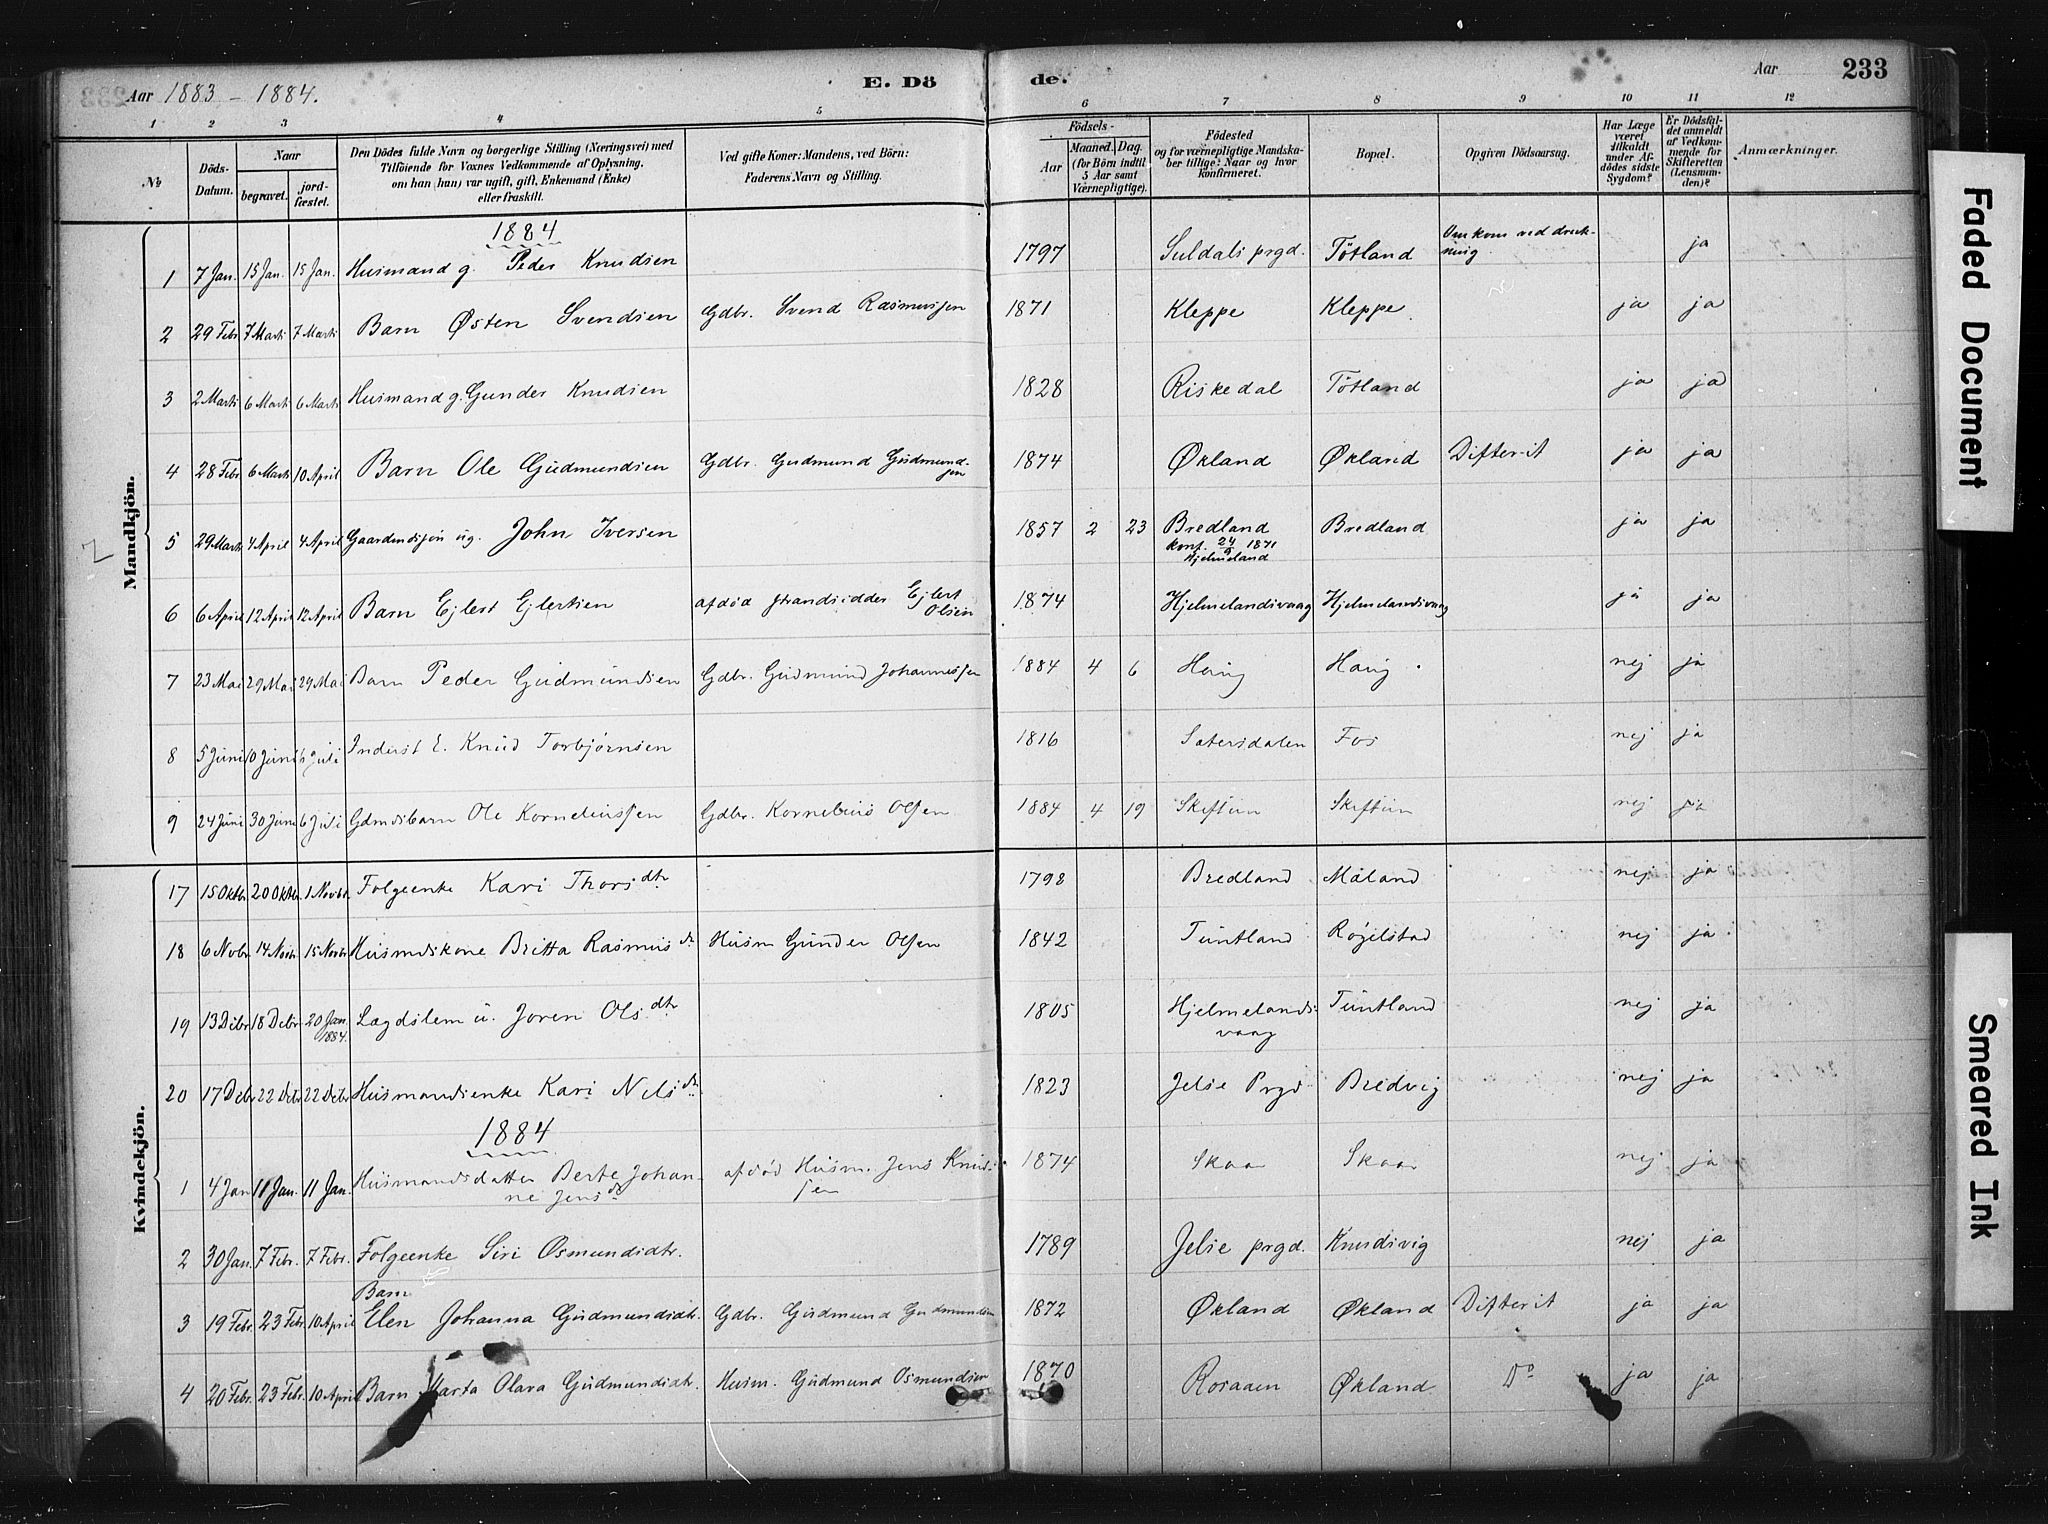 Aar 1883 - 1884.
E. Dö
de.
Aar
233
1 2 3 4 5 6 7 8 9 10 11 12
No
Döds-Datum.
Naar
begravet.
jord-fæstet.
Den Dödes fulde Navn og borgerlige Stilling (Næringsvei) med
Tilföiende for Voxnes Vedkommende af Oplysning,
om han (hun) var ugift, gift, Enkemand (Enke)
eller fraskilt.
Ved gifte Koner: Mandens, ved Börn:
Faderens Navn og Stilling.
Födsels-
Aar
Maaned. Dag.
(for Börn indtil
5 Aar samt
Værnepligtige).
Födested
og for værnepligtige Mandska-
ber tillige: Naar og hvor
konfirmeret.
Bopæl.
Opgiven Dödsaarsag.
Har Læge
været
tilkaldt
under Af-
dödes sidste
Sygdom?
Er Dödsfal-
det anmeldt
af Vedkom-
mende for
Skifteretten
(Lensman-
den)?
Anmærkninger.
Mandkjön.
1884
1 7 Jan. 15 Jan. 15 Jan. Husmand g. Peder Knudsen 1797 Suldals prgd. Tøtland Omkom ved druk-
ning ja
2 29 Febr 7 Marts 7 Marts Barn Østen Svendsen Gdbr. Svend Rasmussen 1871 Kleppe Kleppe ja ja
3 2 Marts 6 Marts 6 Marts Husmand g. Gunder Knudsen 1828 Riskedal Tøtland ja ja
4 28 Febr 6 Marts 10 April Barn Ole Gudmundsen Gdbr. Gudmund Gudmund-
sen 1874 Økland Økland Difterit ja ja
5 29 Marts 4 April 4 April Gaardmdssøn ug. John Iversen 1857 2 23 Bredland Bredland ja ja
konf. 24/9 1871
Hjelmeland
6 6 April 12 April 12 April Barn Ejlert Ejlertsen afdød strandsidder Ejlert
Olsen 1874 Hjelmelandsvaag Hjelmelandsvaag ja ja
7 23 Mai 29 Mai 29 Mai Barn Peder Gudmundsen Gdbr. Gudmund Johannessen 1884 4 6 Haug Haug nej ja
8 5 Juni 10 Juni 6 Juli Inderst E. Knud Torbjørnsen 1816 Satersdalen Fos nej ja
9 24 Juni 30 Juni 6 Juli Gdmdsbarn Ole Korneliussen Gdbr. Kornelius Olsen 1884 4 19 Skiftun Skiftun nej ja
Kvindekjön.
17 15 Oktbr 20 Oktbr. 1 Novbr Folgeenke Kari Thorsdtr 1798 Bredland Måland nej ja
18 6 Nobr 14 Novbr 15 Novbr Husmdskone Britta Rasmusdr Husm Gunder Olsen 1842 Tuntland Røgelstad nej ja
19 13 Debr 18 Debr 20 Jan.
1884. Lægdslem u. Joren Olsdtr 1805 Hjelmelands-
vaag Tuntland nej ja
20 17 Debr 22 Debr 22 Debr Husmandsenke Kari Nelsdr 1823 Jelse Prgd Bredvig nej ja
1884
1 4 Jan 11 Jan. 11 Jan. Husmandsdatter Berte Johan-
ne Jensdr afdød Husm. Jens Knud-
sen 1874 Skaar Skaar nej ja
2 30 Jan. 7 Febr. 7 Febr. Folgeenke Siri Osmundsdtr. 1789 Jelse prgd. Knudsvig nej ja
Barn
3 19 Febr. 23 Febr. 10 April Elen Johanna Gudmundsdtr. Gdbr. Gudmund Gudmundsen 1872 Økland Økland Difterit ja ja
4 20 Febr. 23 Febr. 10 April Barn Marta Olava Gudmundsdtr. Husm. Gudmund Osmundsen 1870 Rosaaen Økland Do ja ja
Faded Document
Smeared Ink